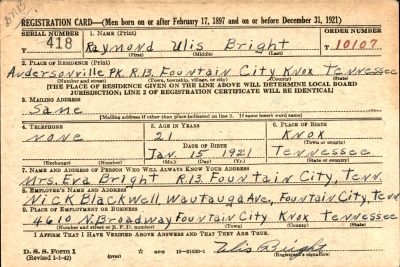 REGISTRATION CARD—(Men born on or after February 17, 1897 and on or before December 31, 1921)
SERIAL NUMBER 1. NAME (Print) ORDER NUMBER
418 Raymond Ulis Bright 10107
(First) (Middle) (Last)
2. PLACE OF RESIDENCE (Print)
Andersonville PK. R.13. Fountain City Knox Tennessee
(Number and street) (Town, township, village, or city) (County) (State)
[THE PLACE OF RESIDENCE GIVEN ON THE LINE ABOVE WILL DETERMINE LOCAL BOARD
JURISDICTION; LINE 2 OF REGISTRATION CERTIFICATE WILL BE IDENTICAL]
3. MAILING ADDRESS
Same
[Mailing address if other than place indicated on line 2. If same insert word same]
4. TELEPHONE 5. AGE IN YEARS 6. PLACE OF BIRTH
none 21 Knox
DATE OF BIRTH (Town or county)
Jan. 15 1921 Tennessee
(Exchange) (Number) (Mo.) (Day) (Yr.) (State or country)
7. NAME AND ADDRESS OF PERSON WHO WILL ALWAYS KNOW YOUR ADDRESS
Mrs. Eva Bright R.13. Fountain City, Tenn.
8. EMPLOYER'S NAME AND ADDRESS
Nick Blackwell Wautauga Ave, Fountain City, Tenn
9. PLACE OF EMPLOYMENT OR BUSINESS
4610 N. Broadway Fountain City Knox Tennessee
(Number and street or R. F. D. number) (Town) (County) (State)
I AFFIRM THAT I HAVE VERIFIED ABOVE ANSWERS AND THAT THEY ARE TRUE.
D. S. S. Form 1
(Revised 1-1-42) (over) 16—21630-1 Ulis Bright
(Registrant's signature)